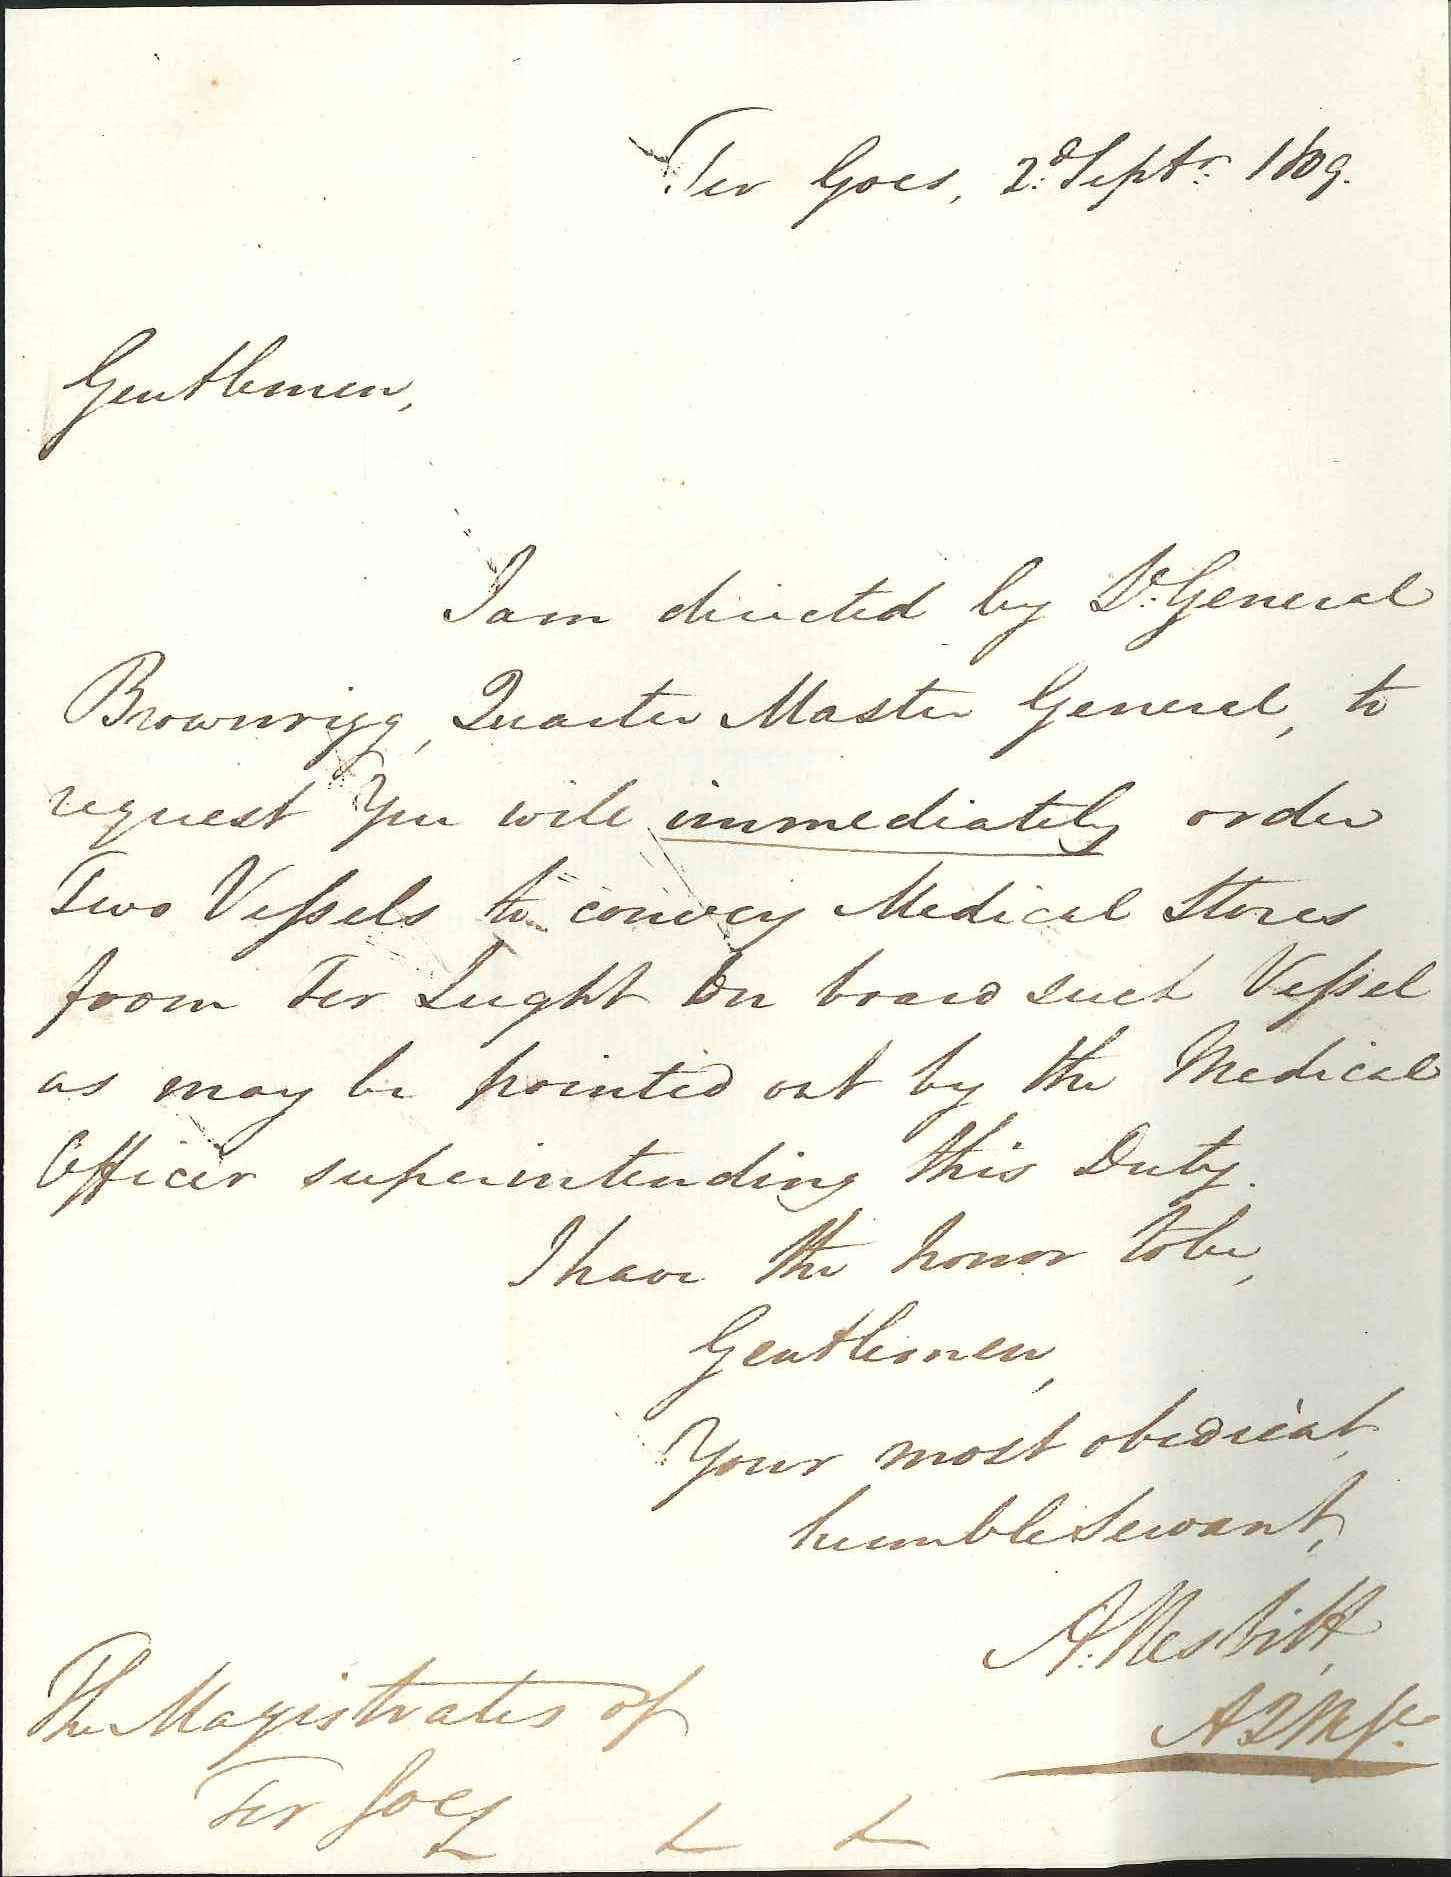 Ter Goes, 2d. Septr. 1809.
Gentlemen,
I am directed by Lt. General
Brownrigg, Quarter Master General, to
request You will immediately order
Two Vessels to convey Medical Stores
from Ter Lught on board such Vessel
as may be pointed out by the Medical
Officer superintending this Duty.
I have the honor to be,
Gentlemen,
Your most obedient,
humble Servant,
A: Nesbitt,
The Magistrates of
Ter Goes